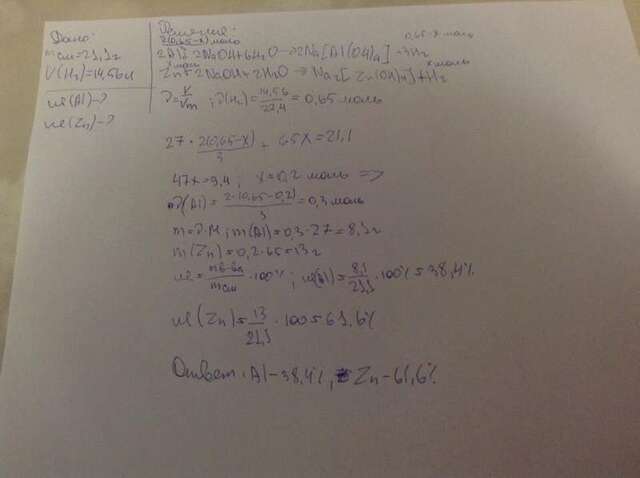 Дано:
mсм=21,1г
V(H₂)=14,56л
ω(Al)-?
ω(Zn)-?
Решение:
2(0,65-x) моль
0,65-x моль
2Al+2NaOH+6H₂O->2Na[Al(OH)₄]+3H₂
x моль
x моль
Zn+2NaOH+2H₂O->Na₂[Zn(OH)₄]+H₂
ν=V/Vm; ν(H₂)=14,56/22,4=0,65 моль
27·2(0,65-x)/3+65x=21,1
47x=9,4; x=0,2 моль =>
ν(Al)=2·(0,65-0,2)/3=0,3 моль
m=ν·M; m(Al)=0,3·27=8,1г
m(Zn)=0,2·65=13г
ω=mв-ва/mсм·100%; ω(Al)=8,1/21,1·100%=38,4%
ω(Zn)=13/21,1·100=61,6%
Ответ: Al-38,4%, Zn-61,6%